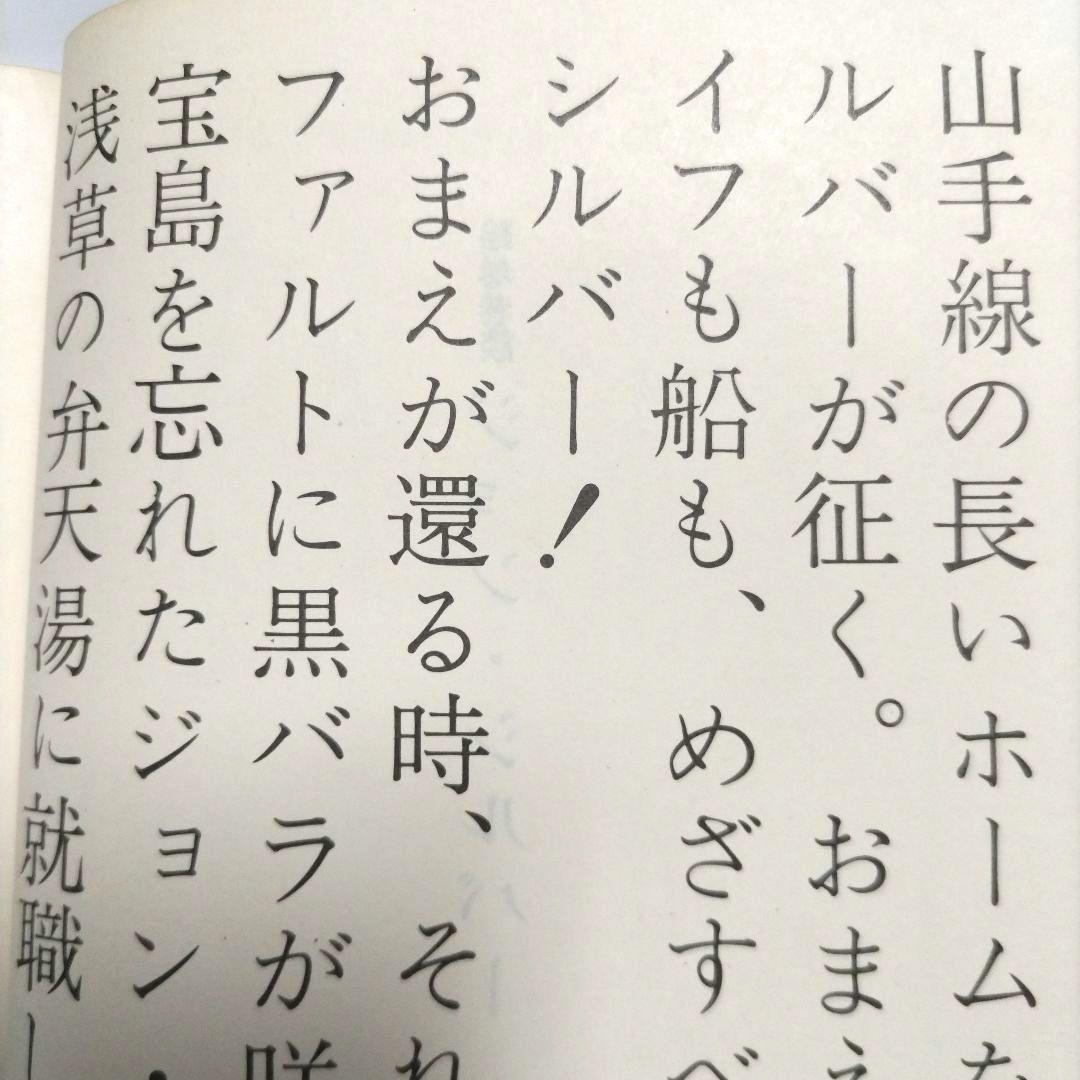 山手線の長いホームを
ルバーが征く。おまえ
イフも船も、めざすべ
シルバー!
おまえが還る時、それ
ファルトに黒バラが咲
宝島を忘れたジョン・
浅草の弁天湯に就職し